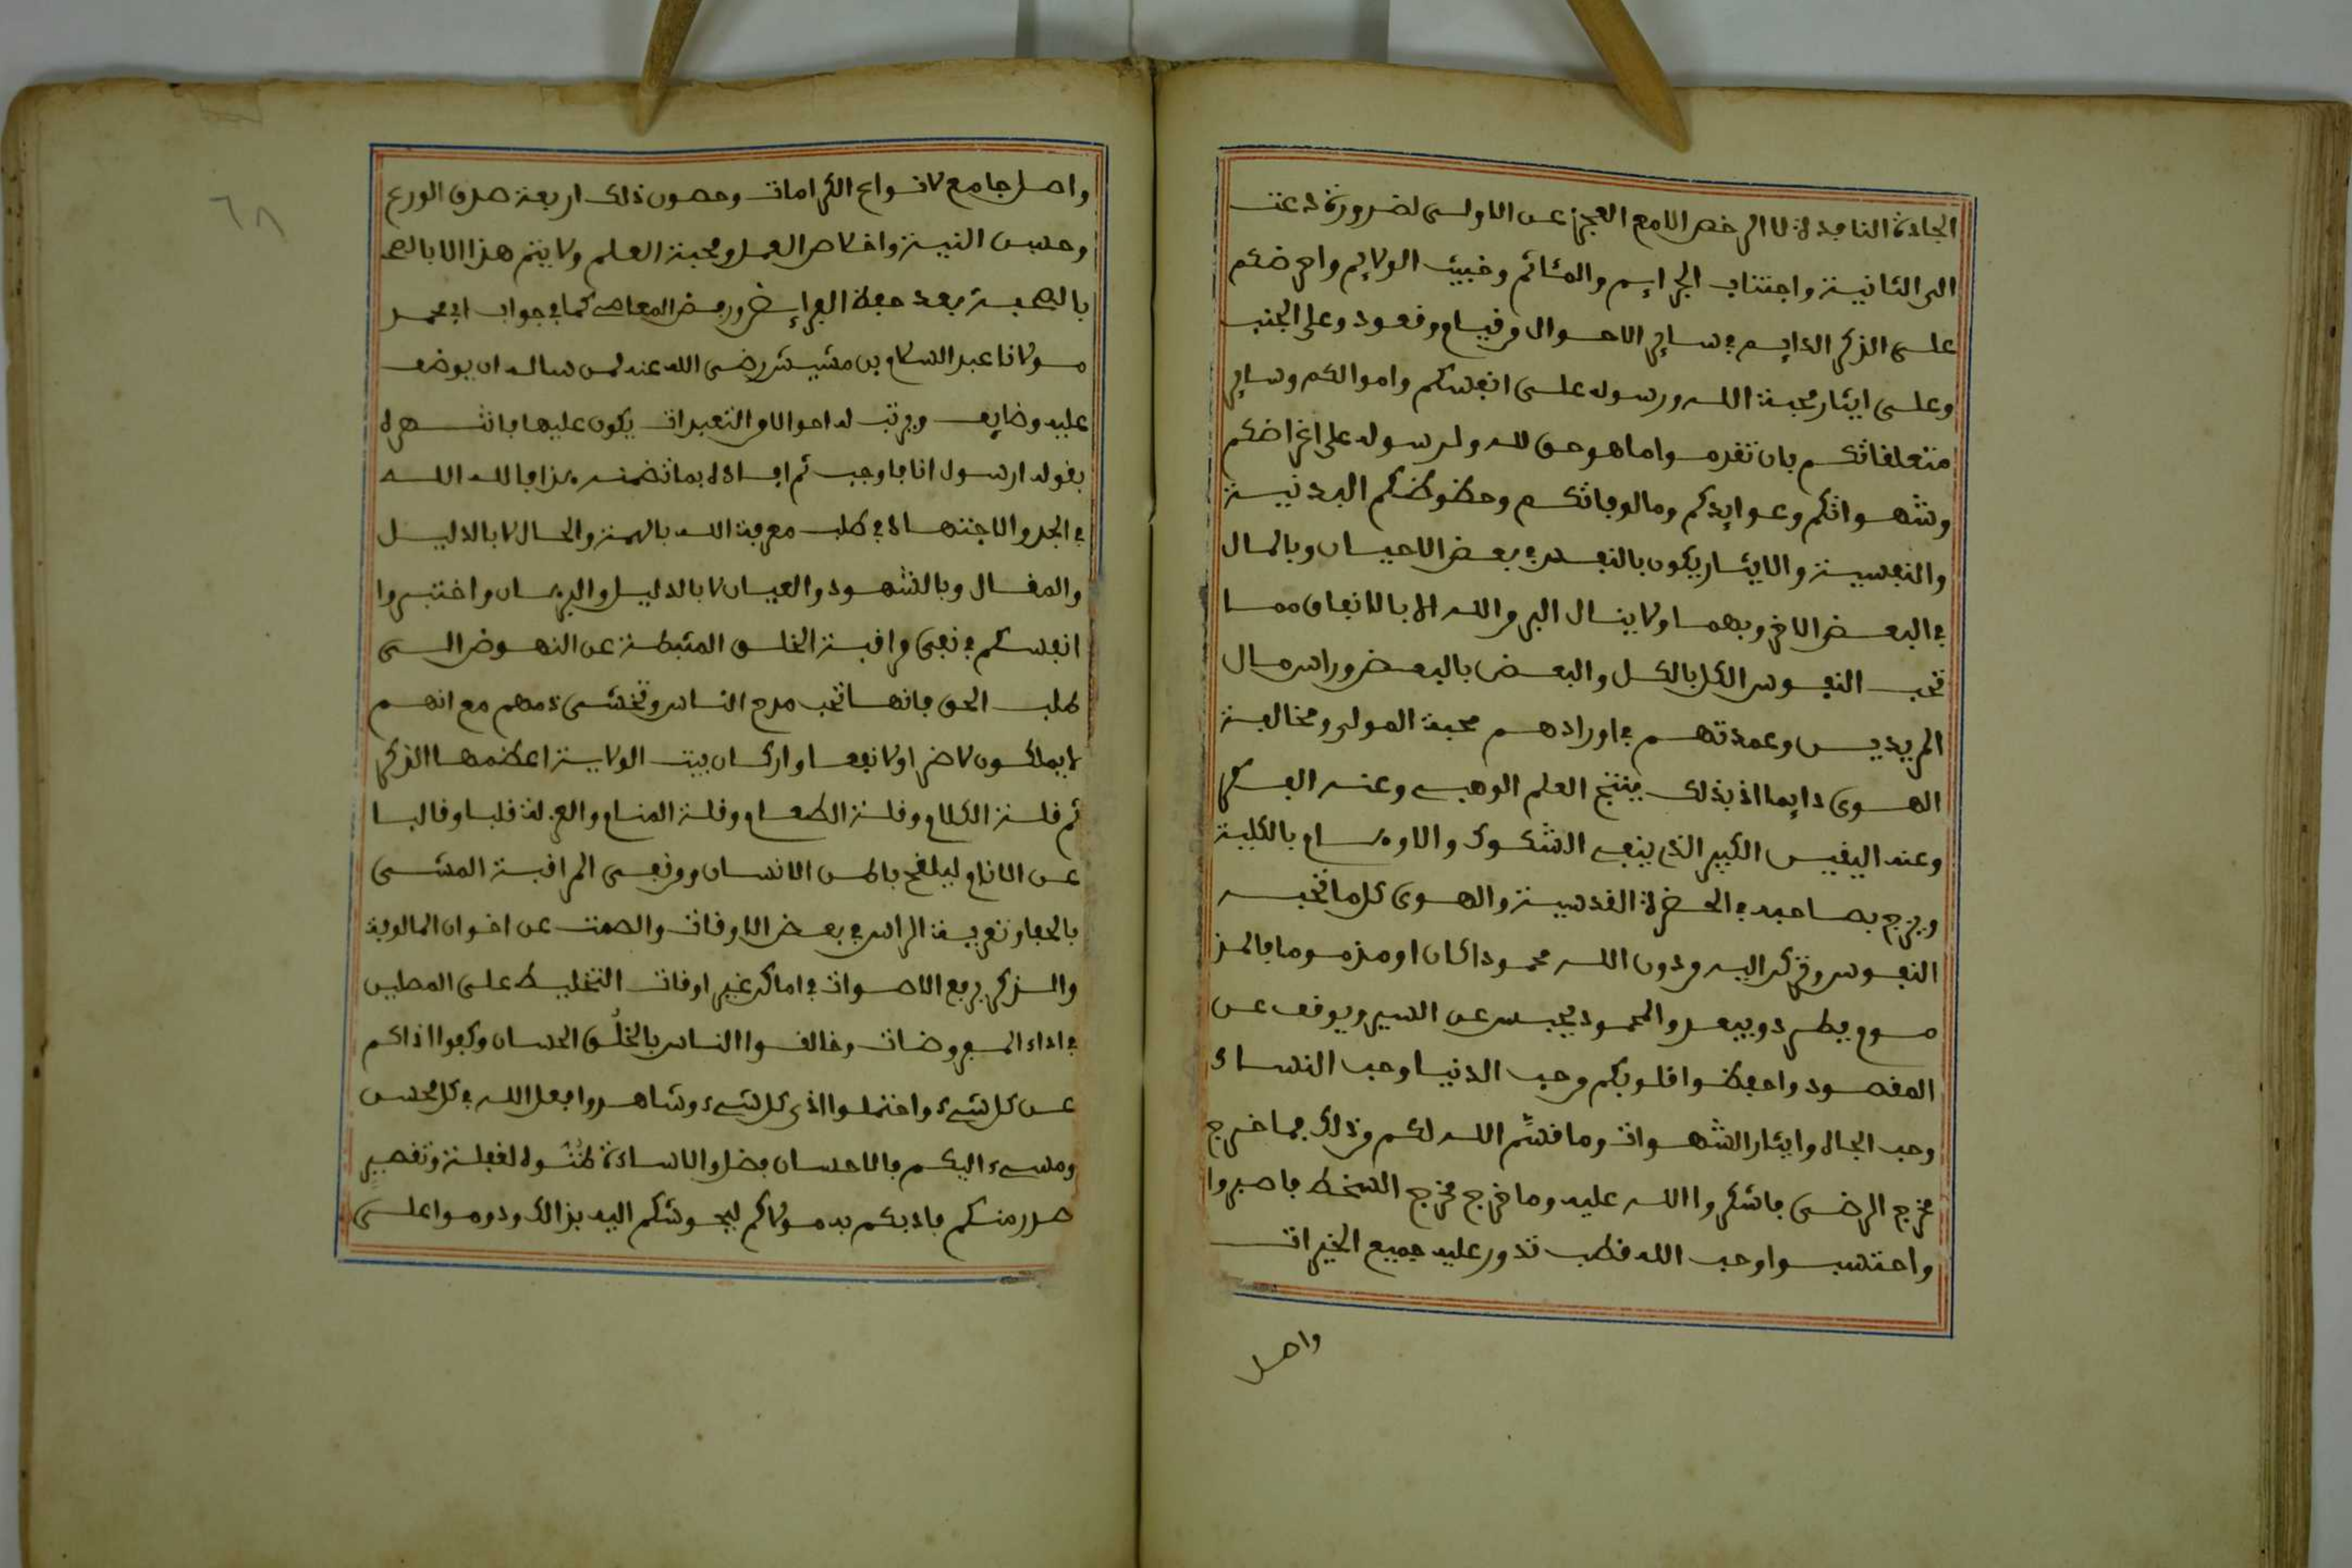 الجادة النافدة لا الرخص الا مع العجز عن الاولى لضرورة دعت
الى الثانية واجتناب الجرايم والمئاثم وخبيث الولايم واحرضكم
على الذكر الدايم في ساير الاحوال من قيام وقعود وعلى الجنب
وعلى ايثار محبة الله ورسوله على انفسكم واموالكم وساير
متعلقاتكم بان تقدموا ما هو حق لله ولرسوله على اغراضكم
وشهواتكم وعوايدكم ومالوفاتكم وحظوظكم البدنية
والنفسية والايثار يكون بالنفس في بعض الاحيان وبالمال
في البعض الاخر وبهما ولا ينال البر من الله الا بالانفاق مما
تحب النفوس الكل بالكل والبعض بالبعض وراس مال
المريدين وعمدتهم في اورادهم محبة المولى ومخالفة
الهوى دايما اذ بذلك ينتج العلم الوهبي وعنه الفكر
وعنه اليقين الكبير الذي ينفي الشكوك والاوهام بالكلية
ويزج بصاحبه في الحضرة القدسية والهوى كل ما تحبه
النفوس وتركن اليه من دون الله محمودا كان او مذموما فالمذ
موم يطرد ويبعد والمحمود يحبس عن السير ويوقف عن
المقصود واحفظوا قلوبكم من حب الدنيا وحب النساء
وحب الجاه وايثار الشهوات وما قسم الله لكم من ذلك فما خرج
مخرج الرضى فاشكروا الله عليه وما خرج مخرج السخط فاصبروا
واحتسبوا وحب الله قطب تدور عليه جميع الخيرات
واصل
٦٨
واصل جامع لانواع الكرامات وحصون ذلك اربعة صدق الورع
وحسن النية واخلاص العمل ومحبة العلم ولا يتم هذا الا بالصحـ
بالصحبة بعد حفظ الفرايض ورفض المعاصي كما في جواب ابي محمد
مولانا عبد السلام بن مشيش رضي الله عنه لمن ساله ان يوضف
عليه وضايف ويرتب له احوالا من التعبدات يكون عليها فانتهره
بقوله ارسول انا فاوجب ثم افاده بما تضمنه هذا فالله الله
في الجد والاجتهاد في طلب معرفة الله بالهمة والحال لا بالدليل
والمقال وبالشهود والعيان لا بالدليل والبرهان واختبروا
انفسكم في نفي مراقبة الخلق المثبطة عن النهوض الى
طلب الحق فانها تحب مدح الناس وتخشى ذمهم مع انهم
لا يملكون لا ضرا ولا نفعا واركان بيت الولاية اعظمها الذكر
ثم قلة الكلام وقلة الطعام وقلة المنام والعزلة قلبا وقالبا
عن الانام ليلقح باطن الانسان ومن نفي المراقبة المشي
بالحفا وتعرية الراس في بعض الاوقات والصمت عن اخوان المالوفية
والذكر برفع الاصوات في اماكن غير اوقات التخليط على المصلين
في اداء المفروضات وخالقوا الناس بالخلق الحسان وكفوا اذاكم
عن كل شيء واحتملوا اذى كل شيء وشاهدوا فعل الله في كل محسن
ومسيء اليكم فالاحسان فضل والاساءة لغفلة وتقصير
صدر منكم فادبكم به مولاكم ليحوشكم اليه بذالك ودوموا على